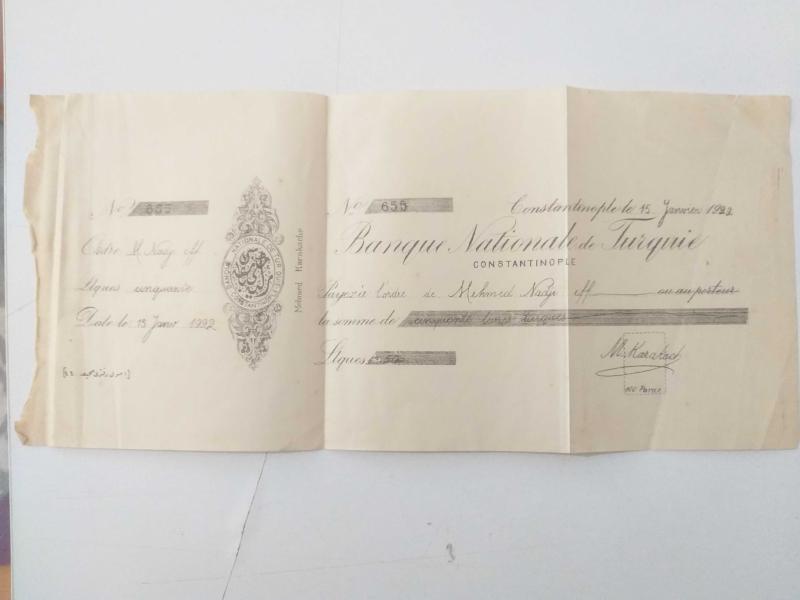 No 655
Ordre M. Nadji eff.
Ltques cinquante
Date le 15 Janv 1922
BANQUE NATIONALE DE TURQUIE
Mehmed Karakache
No 655
Constantinople le 15 Janvier 1922
Banque Nationale de Turquie
CONSTANTINOPLE
Payez à l'ordre de Mehmed Nadji eff. ou au porteur
la somme de cinquante livres turques
Ltques
M. Karakach
Paras